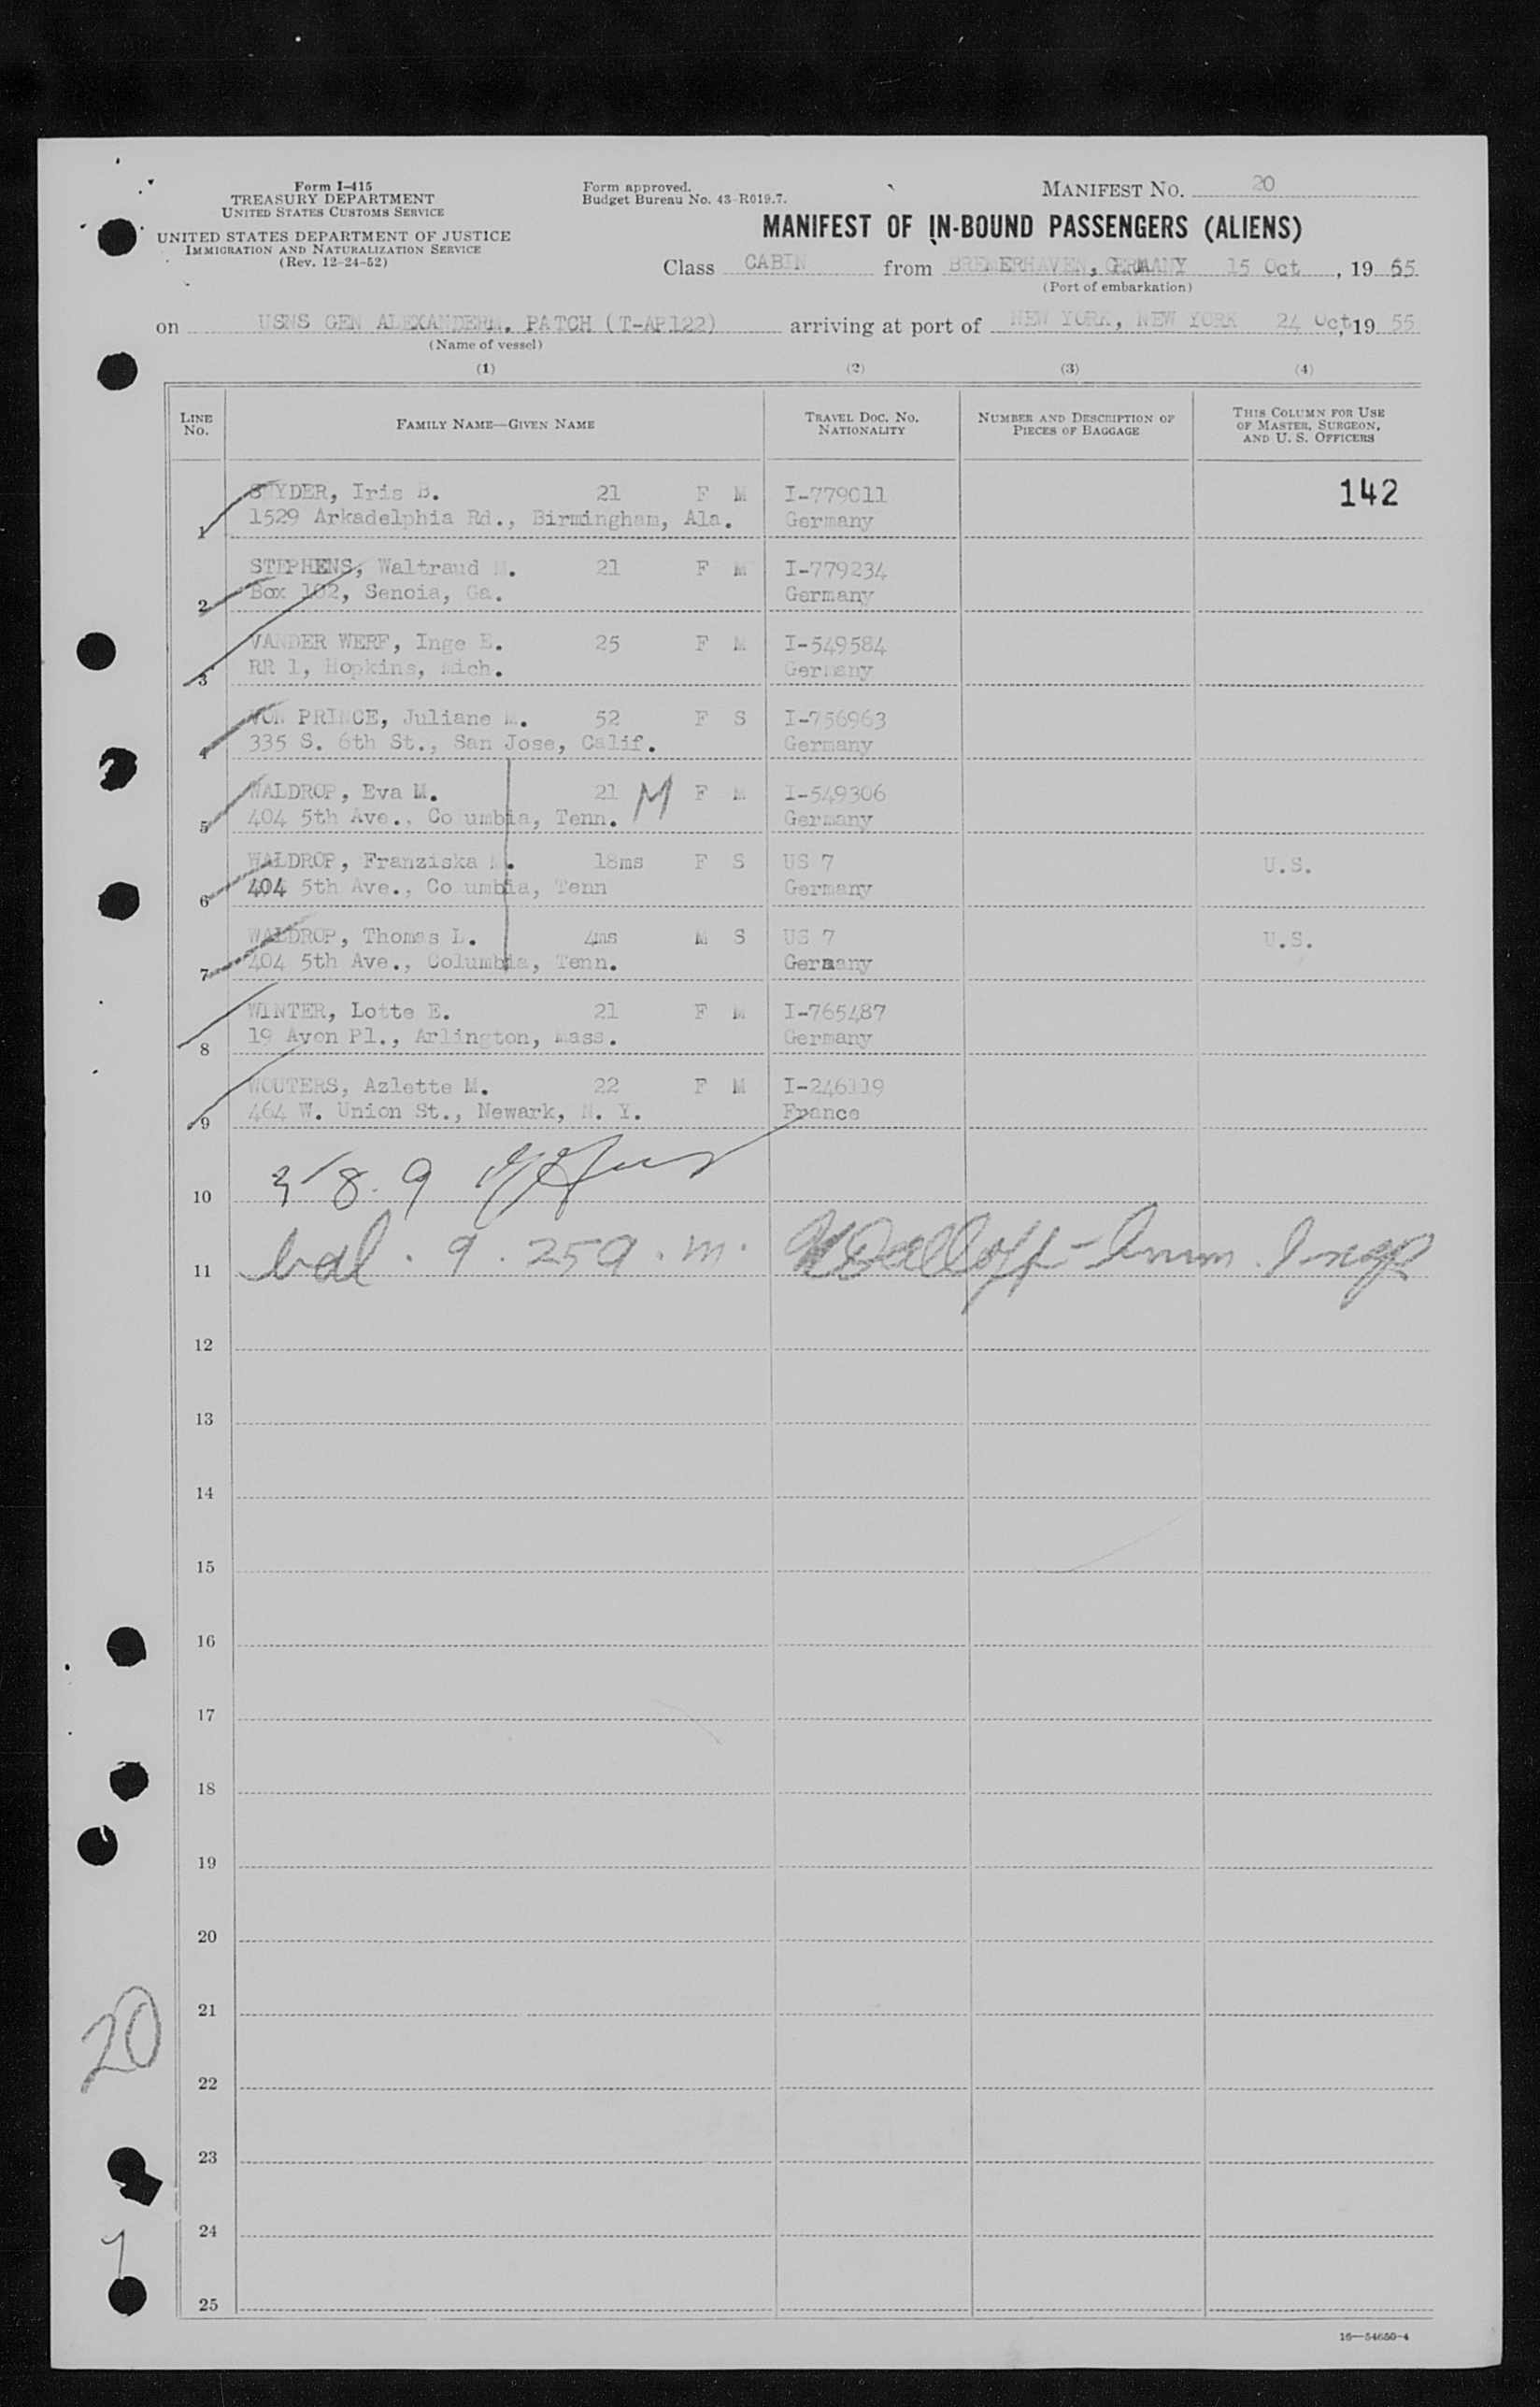 Form I-415
TREASURY DEPARTMENT
UNITED STATES CUSTOMS SERVICE
UNITED STATES DEPARTMENT OF JUSTICE
IMMIGRATION AND NATURALIZATION SERVICE
(Rev. 12-24-52)
Form approved.
Budget Bureau No. 43-R019.7.
MANIFEST NO. 20
MANIFEST OF IN-BOUND PASSENGERS (ALIENS)
Class CABIN from BREMERHAVEN, GERMANY 15 Oct, 1955
(Port of embarkation)
on USNS GEN ALEXANDER M. PATCH (T-AP122) arriving at port of NEW YORK, NEW YORK 24 Oct, 1955
(Name of vessel)
(1) (2) (3) (4)
LINE NO. FAMILY NAME—GIVEN NAME TRAVEL DOC. NO. NATIONALITY NUMBER AND DESCRIPTION OF PIECES OF BAGGAGE THIS COLUMN FOR USE OF MASTER, SURGEON, AND U. S. OFFICERS
SNYDER, Iris B. 21 F M I-779011 142
1 1529 Arkadelphia Rd., Birmingham, Ala. Germany
STEPHENS, Waltraud M. 21 F M I-779234
2 Box 102, Senoia, Ga. Germany
VANDER WERF, Inge E. 25 F M I-549584
3 RR 1, Hopkins, Mich. Germany
VON PRINCE, Juliane M. 52 F S I-756963
4 335 S. 6th St., San Jose, Calif. Germany
WALDROP, Eva M. 21 M F M I-549306
5 404 5th Ave., Columbia, Tenn. Germany
WALDROP, Franziska M. 18ms F S US 7 U.S.
6 404 5th Ave., Columbia, Tenn Germany
WALDROP, Thomas L. 4ms M S US 7 U.S.
7 404 5th Ave., Columbia, Tenn. Germany
WINTER, Lotte E. 21 F M I-765487
8 19 Avon Pl., Arlington, Mass. Germany
WOUTERS, Azlette M. 22 F M I-246119
9 464 W. Union St., Newark, N. Y. France
10 3 8. 9
11 bal. 9. 259. m. Imm. Insp
12
13
14
15
16
17
18
19
20
21
20
22
23
24
25
16—54650-4